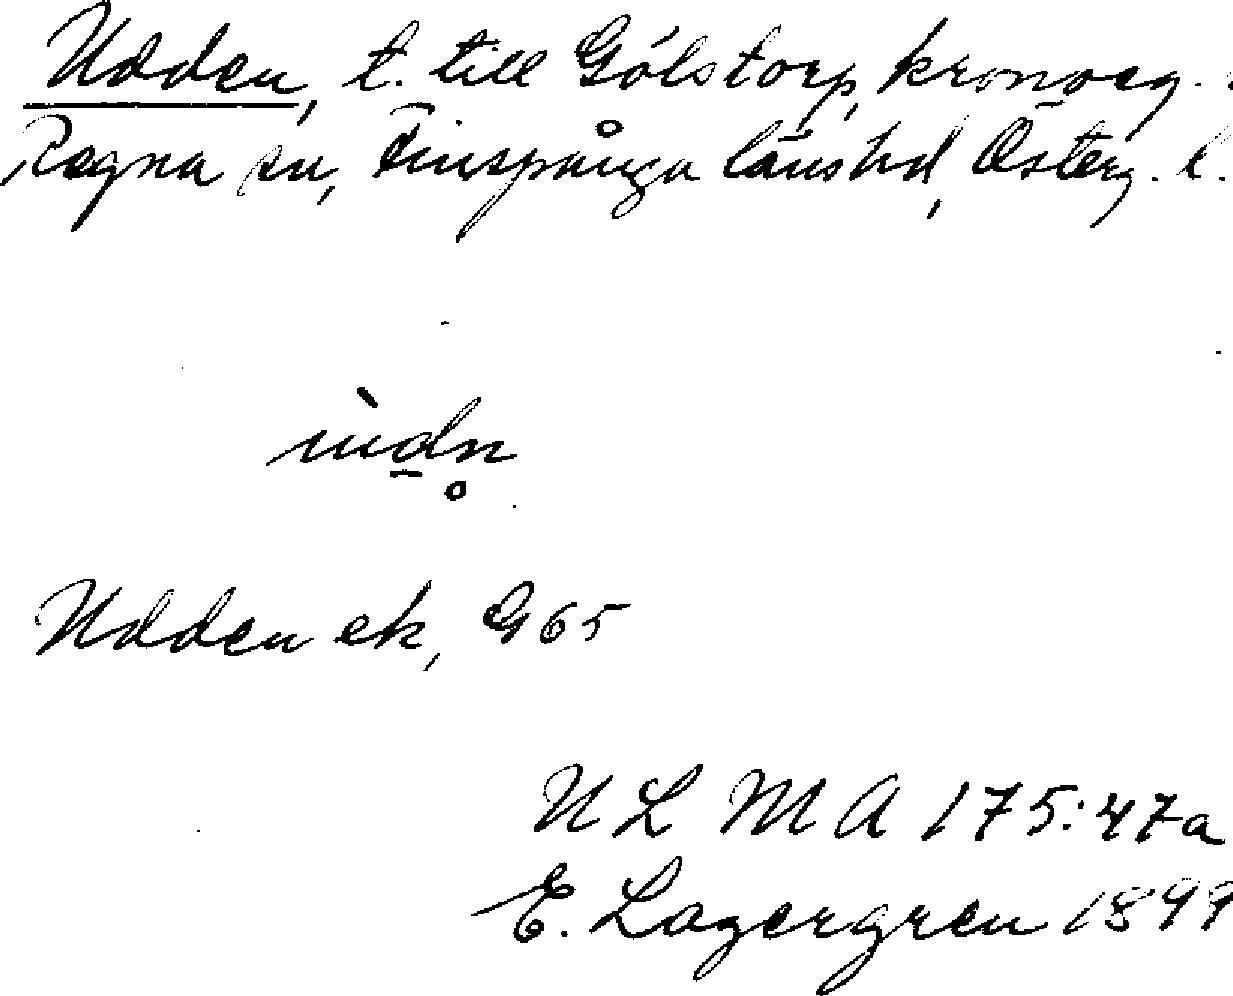 Udden, t. till Gölstorp, kronoeg. i
Regna sn, Finspånga länshd, Österg. l.
ùdn̥
Udden ek, G65
ULMA 175:47a
E. Lagergren 1899